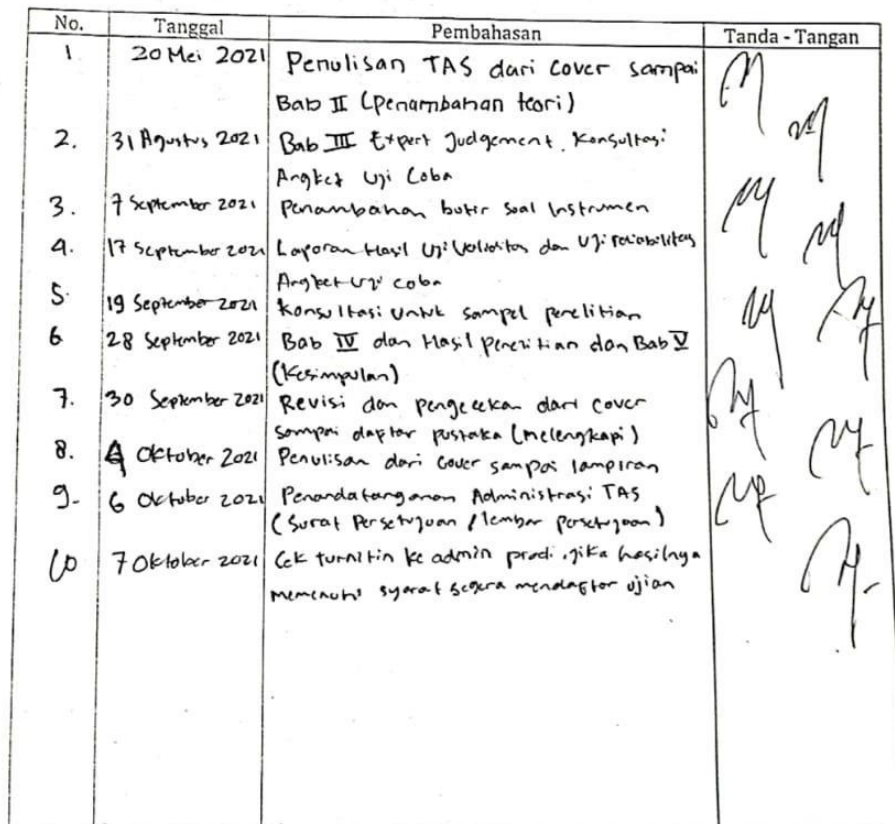 No. Tanggal Pembahasan Tanda - Tangan
1 20 Mei 2021 Penulisan TAS dari cover sampai
Bab II (penambahan teori)
2. 31 Agustus 2021 Bab III Expert Judgement. Konsultasi
Angket Uji Coba
3. 7 September 2021 Penambahan butir soal Instrumen
4. 17 September 2021 Laporan Hasil Uji Validitas dan Uji reliabilitas
Angket Uji coba
5. 19 September 2021 Konsultasi untuk sampel penelitian
6 28 September 2021 Bab IV dan Hasil penelitian dan Bab V
(Kesimpulan)
7. 30 September 2021 Revisi dan pengecekan dari cover
sampai daftar pustaka (melengkapi)
8. 4 Oktober 2021 Penulisan dari cover sampai lampiran
9. 6 Oktober 2021 Penandatanganan Administrasi TAS
(Surat Persetujuan / lembar persetujuan)
10 7 Oktober 2021 Cek turnitin ke admin prodi, jika hasilnya
memenuhi syarat segera mendaftar ujian